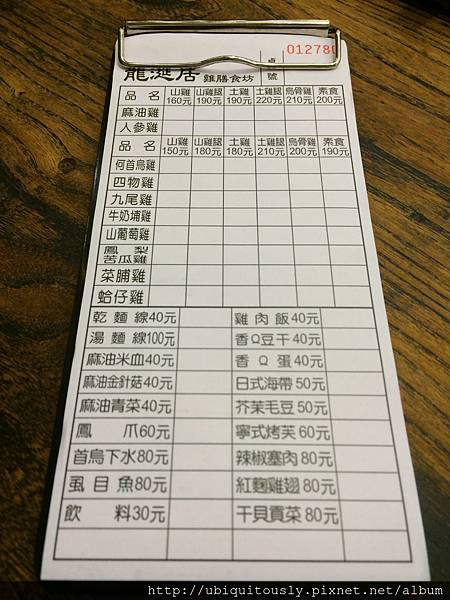 012780
龍涎居 雞膳食坊 桌號
品名 山雞160元 山雞腿190元 土雞190元 土雞腿220元 烏骨雞210元 素食200元
麻油雞
人參雞
品名 山雞150元 山雞腿180元 土雞180元 土雞腿210元 烏骨雞200元 素食190元
何首烏雞
四物雞
九尾雞
牛奶埔雞
山葡萄雞
鳳梨苦瓜雞
菜脯雞
蛤仔雞
乾麵線40元 雞肉飯40元
湯麵線100元 香Q豆干40元
麻油米血40元 香Q蛋40元
麻油金針菇40元 日式海帶50元
麻油青菜40元 芥茉毛豆50元
鳳爪60元 寧式烤芙60元
首烏下水80元 辣椒塞肉80元
虱目魚80元 紅麴雞翅80元
飲料30元 干貝貢菜80元
http://ubiquitously.pixnet.net/album